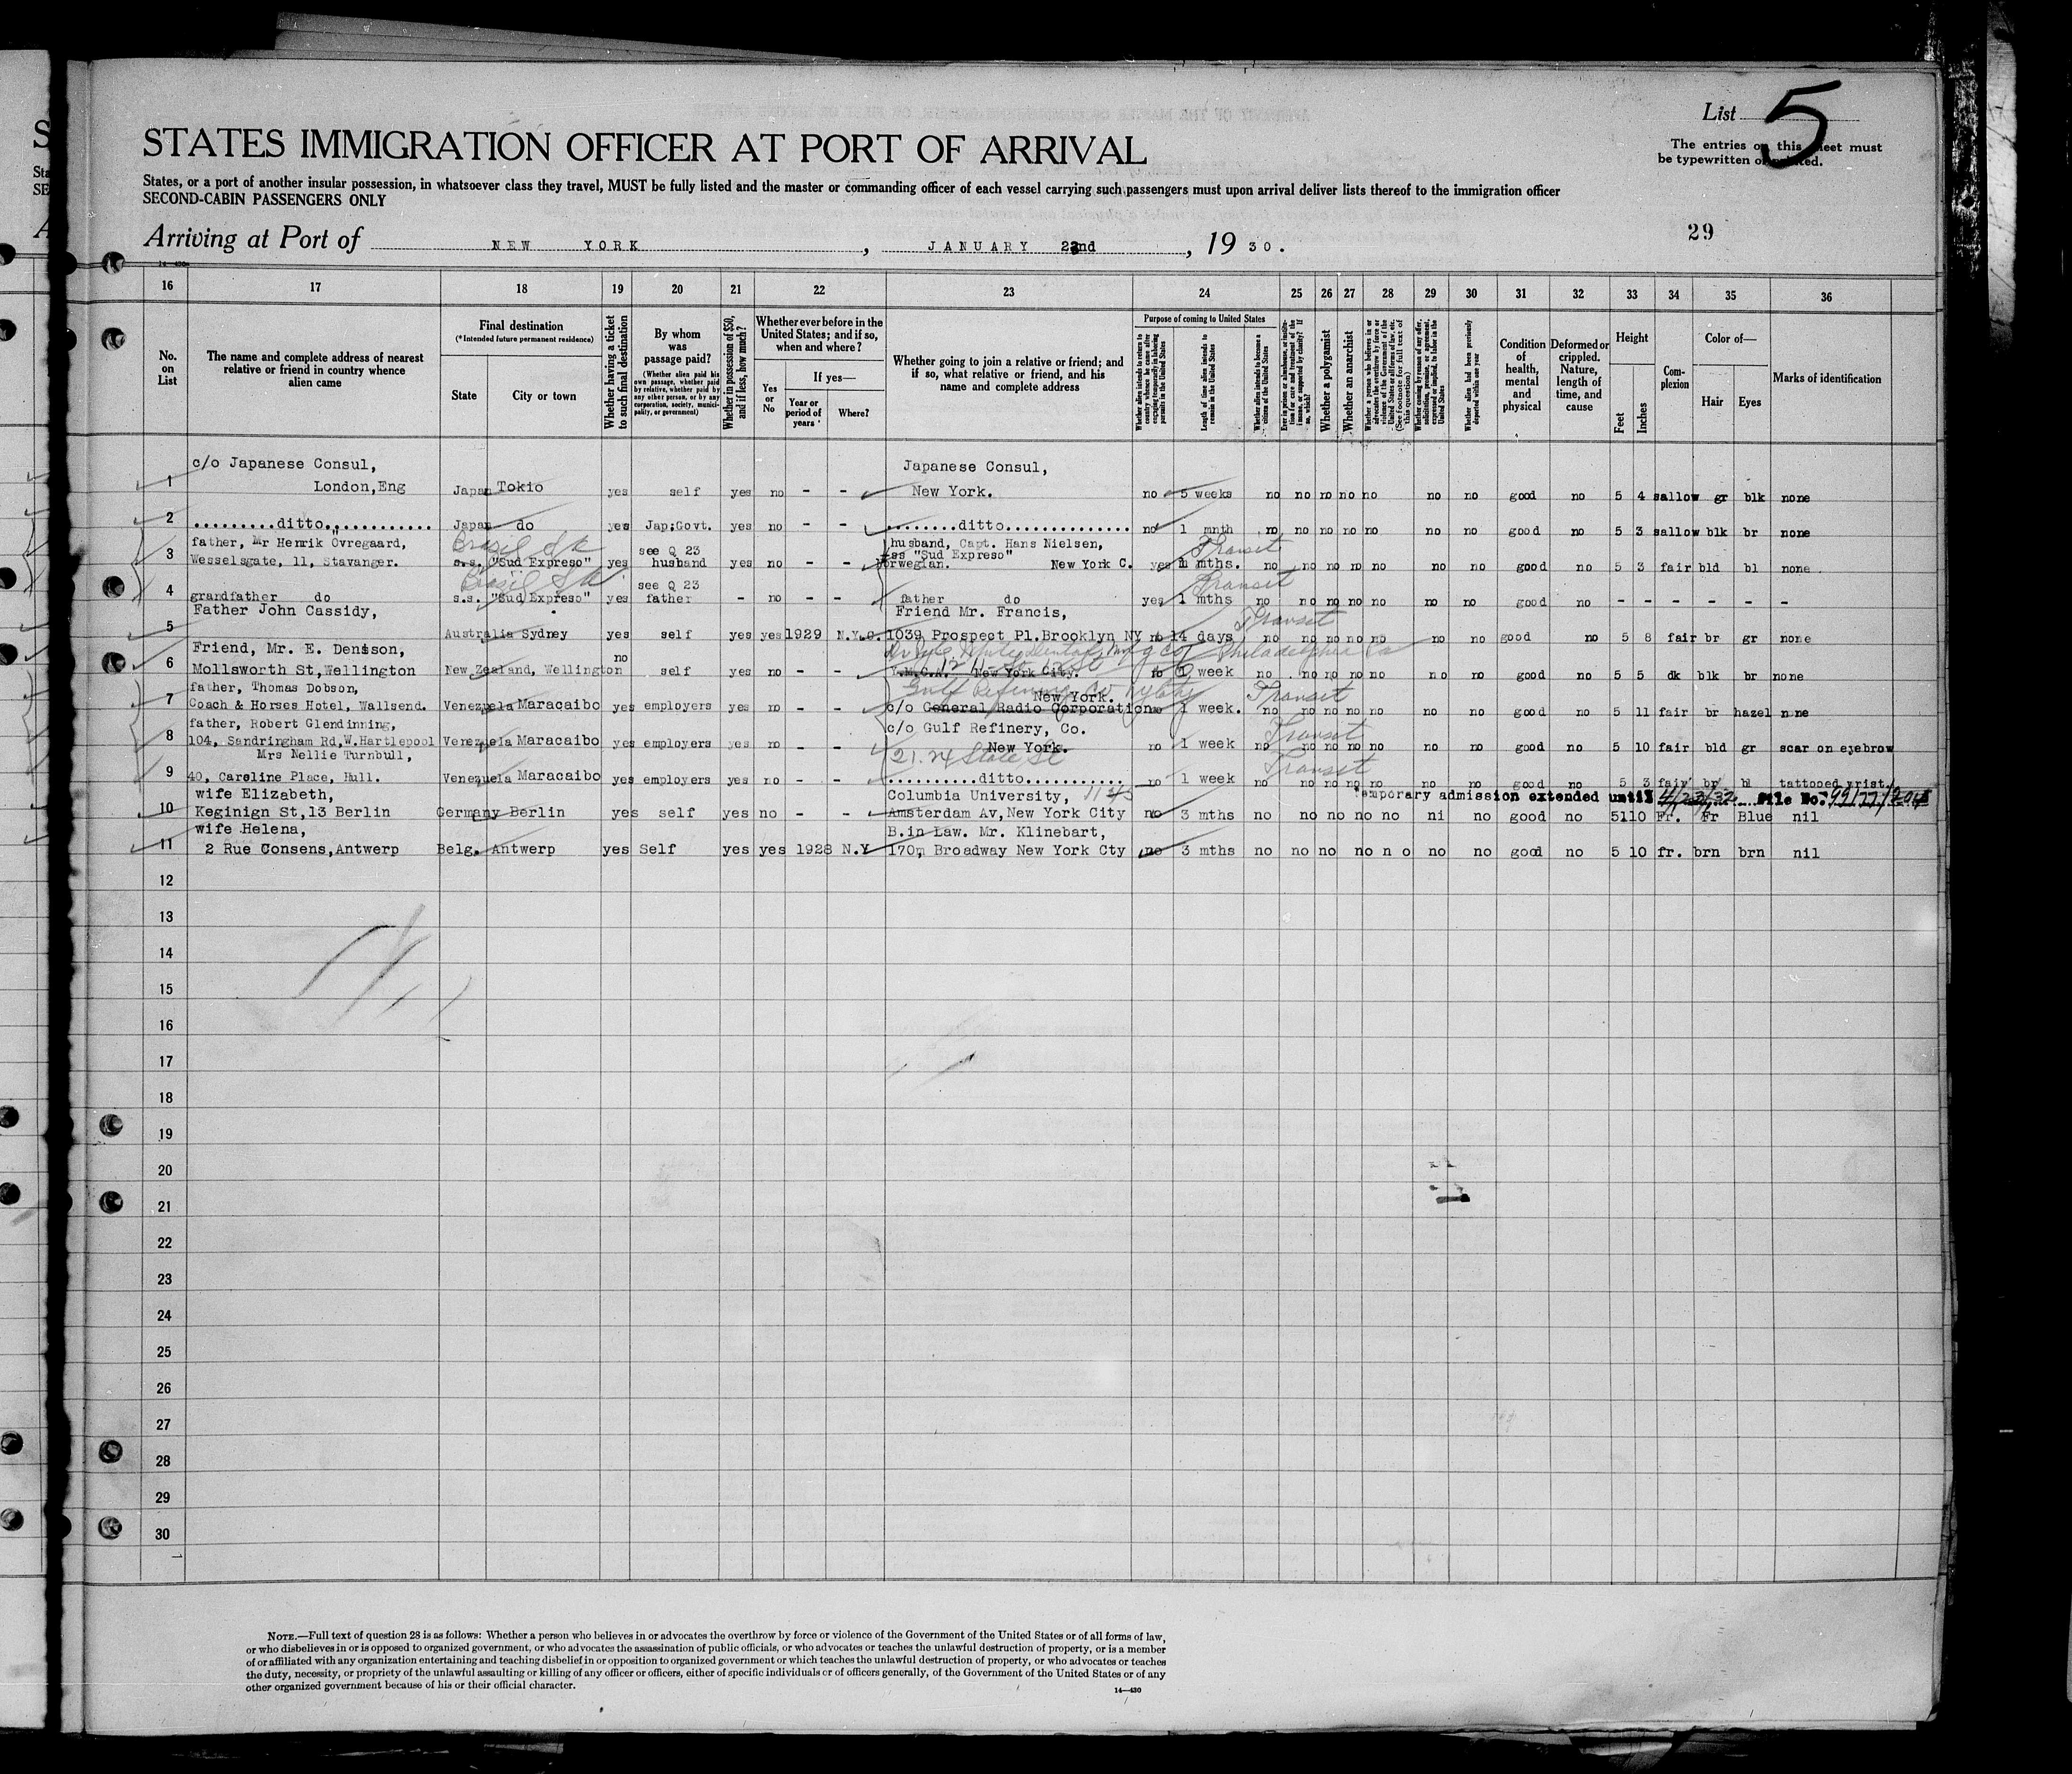 List 5
The entries on this sheet must
be typewritten or printed.
STATES IMMIGRATION OFFICER AT PORT OF ARRIVAL
States, or a port of another insular possession, in whatsoever class they travel, MUST be fully listed and the master or commanding officer of each vessel carrying such passengers must upon arrival deliver lists thereof to the immigration officer
SECOND-CABIN PASSENGERS ONLY
Arriving at Port of NEW YORK , JANUARY 22nd , 19 30.
29
14-430
16 17 18 19 20 21 22 23 24 25 26 27 28 29 30 31 32 33 34 35 36
No. on List
The name and complete address of nearest relative or friend in country whence alien came
Final destination
(*Intended future permanent residence)
State
City or town
Whether having a ticket to such final destination
By whom was passage paid?
(Whether alien paid his own passage, whether paid by relative, whether paid by any other person, or by any corporation, society, municipality, or government)
Whether in possession of $50, and if less, how much?
Whether ever before in the United States; and if so, when and where?
Yes or No
If yes—
Year or period of years
Where?
Whether going to join a relative or friend; and if so, what relative or friend, and his name and complete address
Purpose of coming to United States
Whether alien intends to return to country whence he came after engaging temporarily in laboring pursuits in the United States
Length of time alien intends to remain in the United States
Whether alien intends to become a citizen of the United States
Whether a polygamist
Whether an anarchist
Whether alien had been previously deported within one year
Condition of health, mental and physical
Deformed or crippled. Nature, length of time, and cause
Height
Feet
Inches
Complexion
Color of—
Hair
Eyes
Marks of identification
c/o Japanese Consul, Japanese Consul,
1 London,Eng Japan Tokio yes self yes no - - New York. no 5 weeks no no no no no no no good no 5 4 sallow gr blk none
2 .........ditto............. Japan do yes Jap:Govt. yes no - - .........ditto............... no 1 mnth no no no no no no no good no 5 3 sallow blk br none
father, Mr Henrik Övregaard, Brasil see Q 23 husband, Capt. Hans Nielsen, Transit
ss "Sud Expreso"
3 Wesselsgate, 11, Stavanger. s.s. "Sud Expreso" yes husband yes no - - Norwegian. New York C. yes mths. no no no no no no no good no 5 3 fair bld bl none
Brasil see Q 23 Transit
4 grandfather do s.s. "Sud Expreso" yes father - no - - father do yes 1 mths no no no no no no no good no - - - - - -
Father John Cassidy, Friend Mr. Francis, Transit
5 Australia Sydney yes self yes yes 1929 N.Y.C. 1039 Prospect Pl.Brooklyn NY 14 days no no no no no no no good no 5 8 fair br gr none
Friend, Mr. E. Denisson, no Dental Mfg Co Philadelphia Pa
6 Mollsworth St,Wellington New Zealand, Wellington self yes no - - Y.M.C.A. New York City. week no no no no no no no good no 5 5 dk blk br none
father, Thomas Dobson, Gulf Refining Co New York. Transit
7 Coach & Horses Hotel, Wallsend. Venezuela Maracaibo yes employers yes no - - c/o General Radio Corporation no 1 week. no no no no no no no good no 5 11 fair br hazel none
father, Robert Glendinning, c/o Gulf Refinery, Co. Transit
8 104, Sandringham Rd,W.Hartlepool Venezuela Maracaibo yes employers yes no - - New York. no 1 week no no no no no no no good no 5 10 fair bld gr scar on eyebrow
Mrs Nellie Turnbull, 21.24 State St Transit
9 40, Caroline Place, Hull. Venezuela Maracaibo yes employers yes no - - ..........ditto........... no 1 week no no no no no no no good no 5 3 fair br bl tattooed wrist.
wife Elizabeth, Columbia University, 1145 Temporary admission extended until 4/23/32 File No.
10 Keginign St,13 Berlin Germany Berlin yes self yes no - - Amsterdam Av,New York City no 3 mths no no no no no ni no good no 5 11 0 Fr. Fr Blue nil
wife Helena, B.in Law. Mr. Klinebart,
11 2 Rue Consens,Antwerp Belg. Antwerp yes Self yes yes 1928 N.Y 170, Broadway New York Cty no 3 mths no no no no n o no no good no 5 10 fr. brn brn nil
12
13
14
15
16
17
18
19
20
21
22
23
24
25
26
27
28
29
30
NOTE.—Full text of question 28 is as follows: Whether a person who believes in or advocates the overthrow by force or violence of the Government of the United States or of all forms of law,
or who disbelieves in or is opposed to organized government, or who advocates the assassination of public officials, or who advocates or teaches the unlawful destruction of property, or is a member
of or affiliated with any organization entertaining and teaching disbelief in or opposition to organized government or which teaches the unlawful destruction of property, or who advocates or teaches
the duty, necessity, or propriety of the unlawful assaulting or killing of any officer or officers, either of specific individuals or of officers generally, of the Government of the United States or of any
other organized government because of his or their official character.
14—430